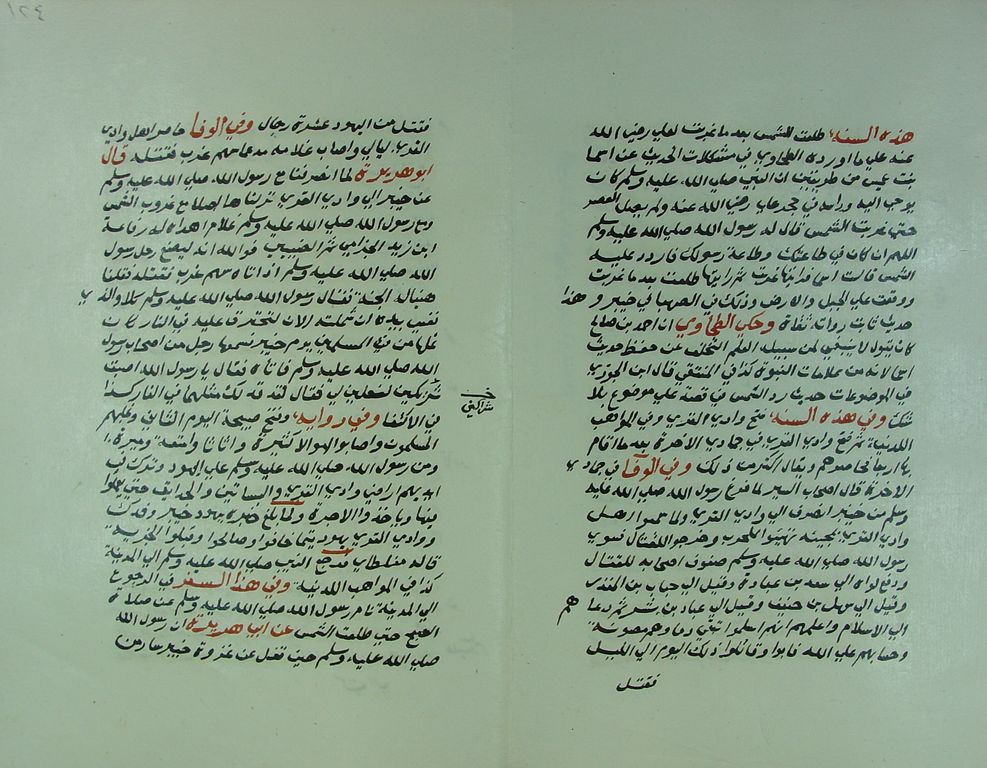 هذه السنة طلعت الشمس بعد ما غربت لعلي رضي الله
عنه علي ما اورده الطحاوي في مشكلات الحديث عن اسما
بنت عميس من طريقين ان النبي صلي الله عليه وسلم كان
يوحي اليه وراسه في حجر علي رضي الله عنه ولم يصل العصر
حتي غربت الشمس قال له رسول الله صلي الله عليه وسلم
اللهم ان كان في طاعتك وطاعة رسولك فاردد عليه
الشمس قالت اسما فرايتها غربت ثم رايتها طلعت بعد ما غربت
ووقعت علي الجبل والارض وذلك في الصهبا في خيبر وهذا
حديث ثابت رواته ثقاة وحكي الطحاوي ان احمد بن صالح
كان يقول لا ينبغي لمن سبيله العلم التخلف عن حفظ حديث
اسما لانه من علامات النبوة كذا في المنتقي قال ابن الجوزي
في الموضوعات حديث رد الشمس في قصة علي موضوع بلا
شك وفي هذه السنة فتح وادي القري وفي المواهب
اللدنية ثم فتح وادي القري في جمادي الاخرة بعد ما اقام
بها اربعا يحاصرهم ويقال اكثر من ذلك وفي الوفا في جمادي
الاخرة قال اصحاب السير لما فرغ رسول الله صلي الله عليه
وسلم من خيبر انصرف الي وادي القري ولما سمعوا اهل
وادي القري بمجيئه تهيئوا للحرب وخرجوا للقتال فسوي
رسول الله صلي الله عليه وسلم صفوف اصحابه للقتال
ودفع لواه الي سعد بن عبادة وقيل الي حباب بن المنذر
وقيل الي سهل بن حنيف وقيل الي عباد بن بشر ثم دعاهم
الي الاسلام واعلمهم انهم اسلموا تبقي دماوهم مصونة
وحسابهم علي الله فابوا وقاتلوا ذلك اليوم الي الليل
فقتل
فقتل من اليهود عشرة رجال وفي الوفا حاصر اهل وادي
القري ليالي واصاب غلامه مدعما سهم غرب فقتله قال
ابو هريرة لما انصرفنا مع رسول الله صلي الله عليه وسلم
عن خيبر الي وادي القري نزلناها اصلا مع غروب الشمس
ومع رسول الله صلي الله عليه وسلم غلام اهداه له رفاعة
ابن زيد الجذامي ثم الضبيبي فوالله انه ليضع رحل رسول
الله صلي الله عليه وسلم اذ اتاه سهم غرب فقتله فقلنا
هنيا له الجنة فقال رسول الله صلي الله عليه وسلم كلا والذي
نفسي بيده ان شملته الان لتحترق عليه في النار كان
غلها من في المسلمين يوم خيبر فسمعها رجل من اصحاب رسول
الله صلي الله عليه وسلم فاتاه فقال يا رسول الله اصبت
شراكين لنعلين لي فقال تقد لك مثلهما في النار كذا
شراكي
في الاكتفا وفي رواية وفتح صبيحة اليوم الثاني وغلبهم
المسلمون واصابوا اموالا كثيرة واثاثا وامتعة وميرة
ومن رسول الله صلي الله عليه وسلم علي اليهود وترك في
ايديهم اراضي وادي القري والبساتين والحدايق حتي يعملوا
فيها وياخذوا الاجرة ولما بلغ خبره يهود خيبر وفدك
ووادي القري يهود تيما خافوا وصالحوا وقبلوا الجزية
قاله مغلطاي فرجع النبي صلي الله عليه وسلم الي المدينة
كذا في المواهب اللدنية وفي هذا السفر في الرجوع
الي المدينة نام رسول الله صلي الله عليه وسلم عن صلاة
الصبح حتي طلعت الشمس عن ابي هريرة ان رسول الله
صلي الله عليه وسلم حين قفل عن غزوة خيبر سار من